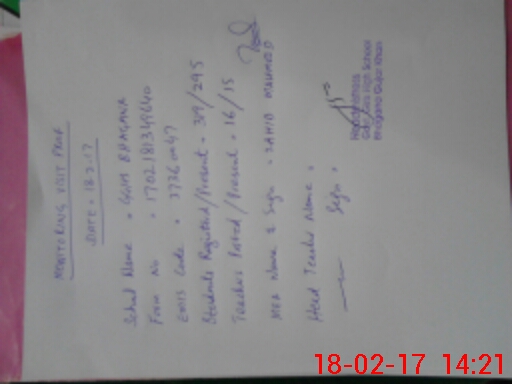 MONITORING VISIT PROF
DATE = 18-2-17
School Name =
Form No = 1702181349640
EMIS Code =
Students Registered/Present = 319/295
Teachers Posted/Present = 16/15
MEA Name & Sign = ZAHID MAHMOOD
Head Teacher Name =
Sign =
Headmistress
High School
Gujar Khan
18-02-17 14:21